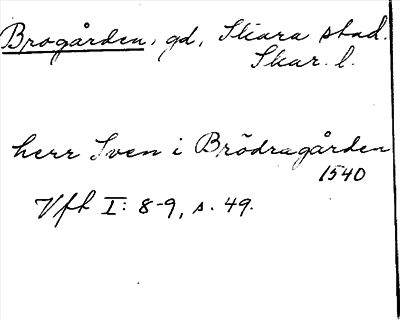 Brogården, gd, Skara stad.
Skar. l.
herr Sven i Brödragården
1540
Vft I: 8-9, s. 49.